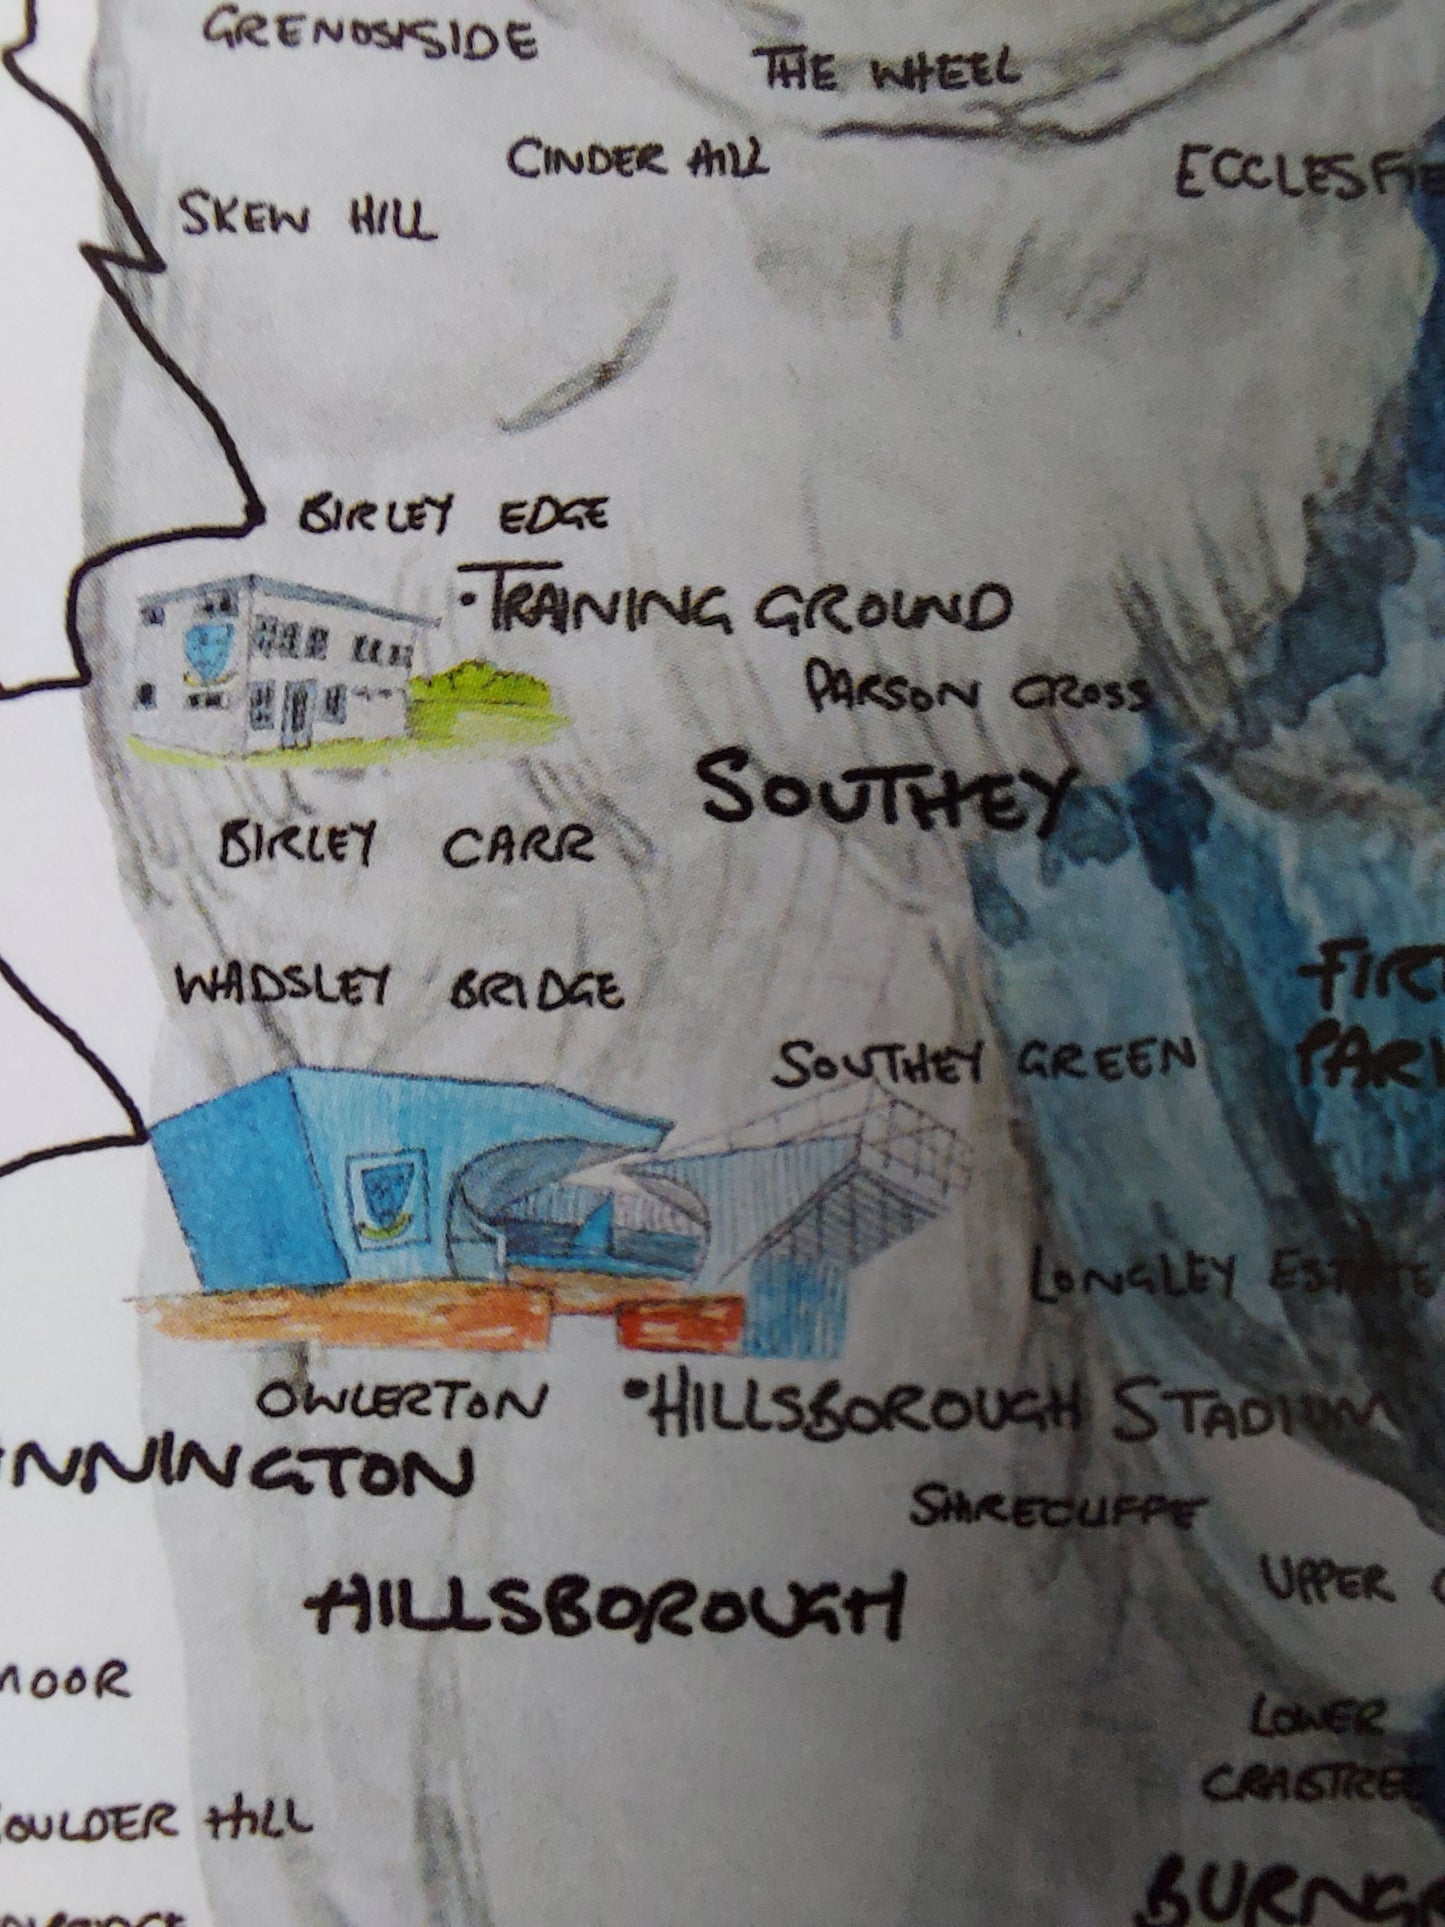 GRENOSIDE
THE WHEEL
CINDER HILL
ECCLESFIE
SKEW HILL
BIRLEY EDGE
•TRAINING GROUND
PARSON CROSS
SOUTHEY
BIRLEY CARR
FIR
WADSLEY BRIDGE
SOUTHEY GREEN
PAR
LONGLEY ESTATE
OWLERTON
•HILLSBOROUGH STADIUM
NNINGTON
SHIRECLIFFE
UPPER
HILLSBOROUGH
MOOR
LOWER
CRABTREE
OULDER HILL
BURNG